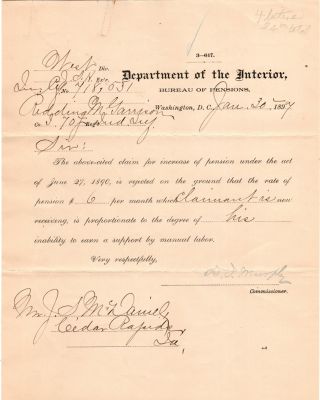 3—617.
West Div.
Department of the Interior,
No. 718,031
BUREAU OF PENSIONS,
Redding McGarrion
Washington, D. C., Jan. 30, 1897
Co. I, 70" Ind Inf
Sir:
The above-cited claim for increase of pension under the act
of June 27, 1890, is rejected on the ground that the rate of
pension $ 6 per month which claimant is now
receiving, is proportionate to the degree of his
inability to earn a support by manual labor.
Very respectfully,
Murphy
Commissioner.
Mr. J. S. McDaniel,
Cedar Rapids,
Ia,